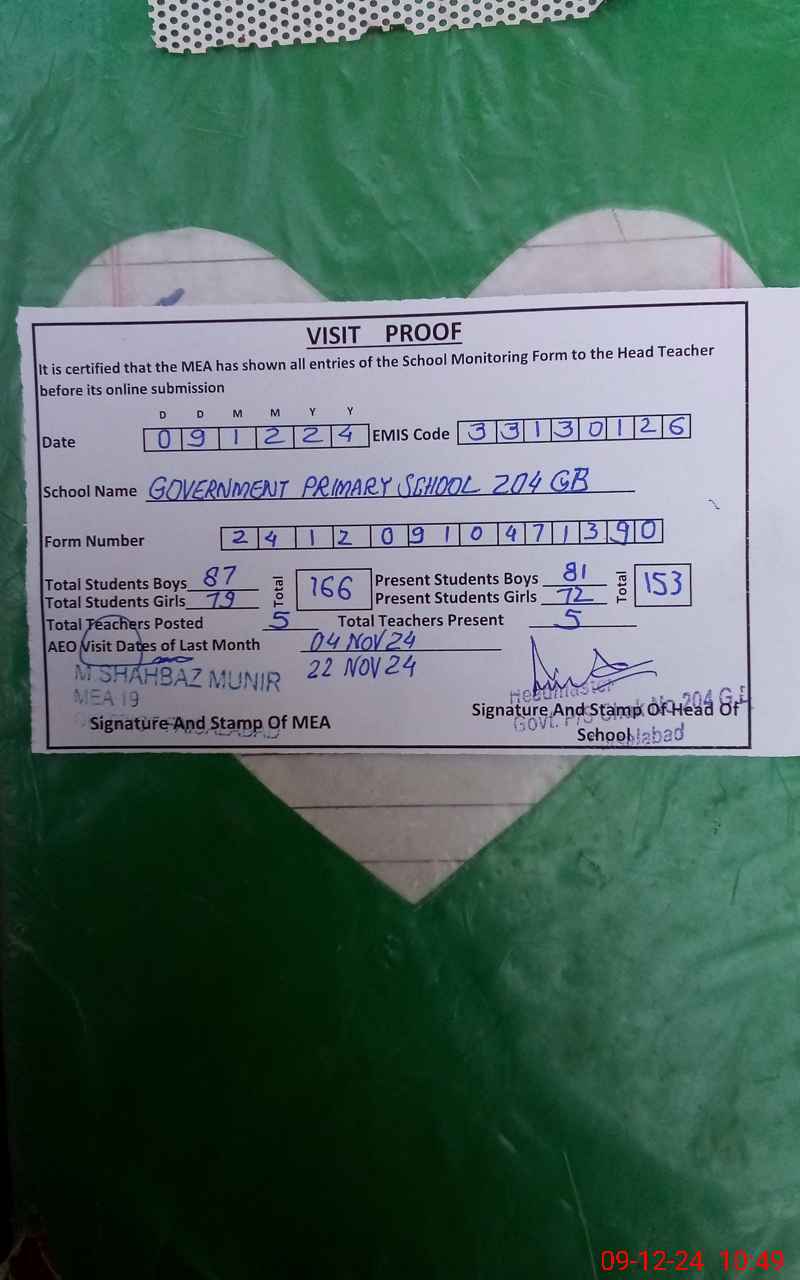 VISIT PROOF
It is certified that the MEA has shown all entries of the School Monitoring Form to the Head Teacher
before its online submission
D D M M Y Y
Date 091224 EMIS Code 33130126
School Name GOVERNMENT PRIMARY SCHOOL 204 GB
Form Number 24120910471390
Total Students Boys 87 Total 166 Present Students Boys 81 Total 153
Total Students Girls 79 Present Students Girls 72
Total Teachers Posted 5 Total Teachers Present 5
AEO Visit Dates of Last Month 04 NOV 24
22 NOV 24
M.SHAHBAZ MUNIR
MEA 19
FAISALABAD
Signature And Stamp Of MEA
Headmaster
Signature And Stamp Of Head Of
School
Govt. P/S Chak No. 204 G.B
09-12-24 10:49